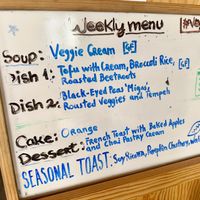 Weekly menu
Soup: Veggie Cream [GF]
Dish 1: Tofu with Cream, Broccoli Rice,
Roasted Beetroots
Dish 2: Black-Eyed Peas 'Migas',
Rousted Veggies and Tempeh
Cake: Orange
Dessert: French Toast with Baked Apples
and Chai Pastry Cream
SEASONAL TOAST: Soy Ricotta, Pumpkin Chutney, with